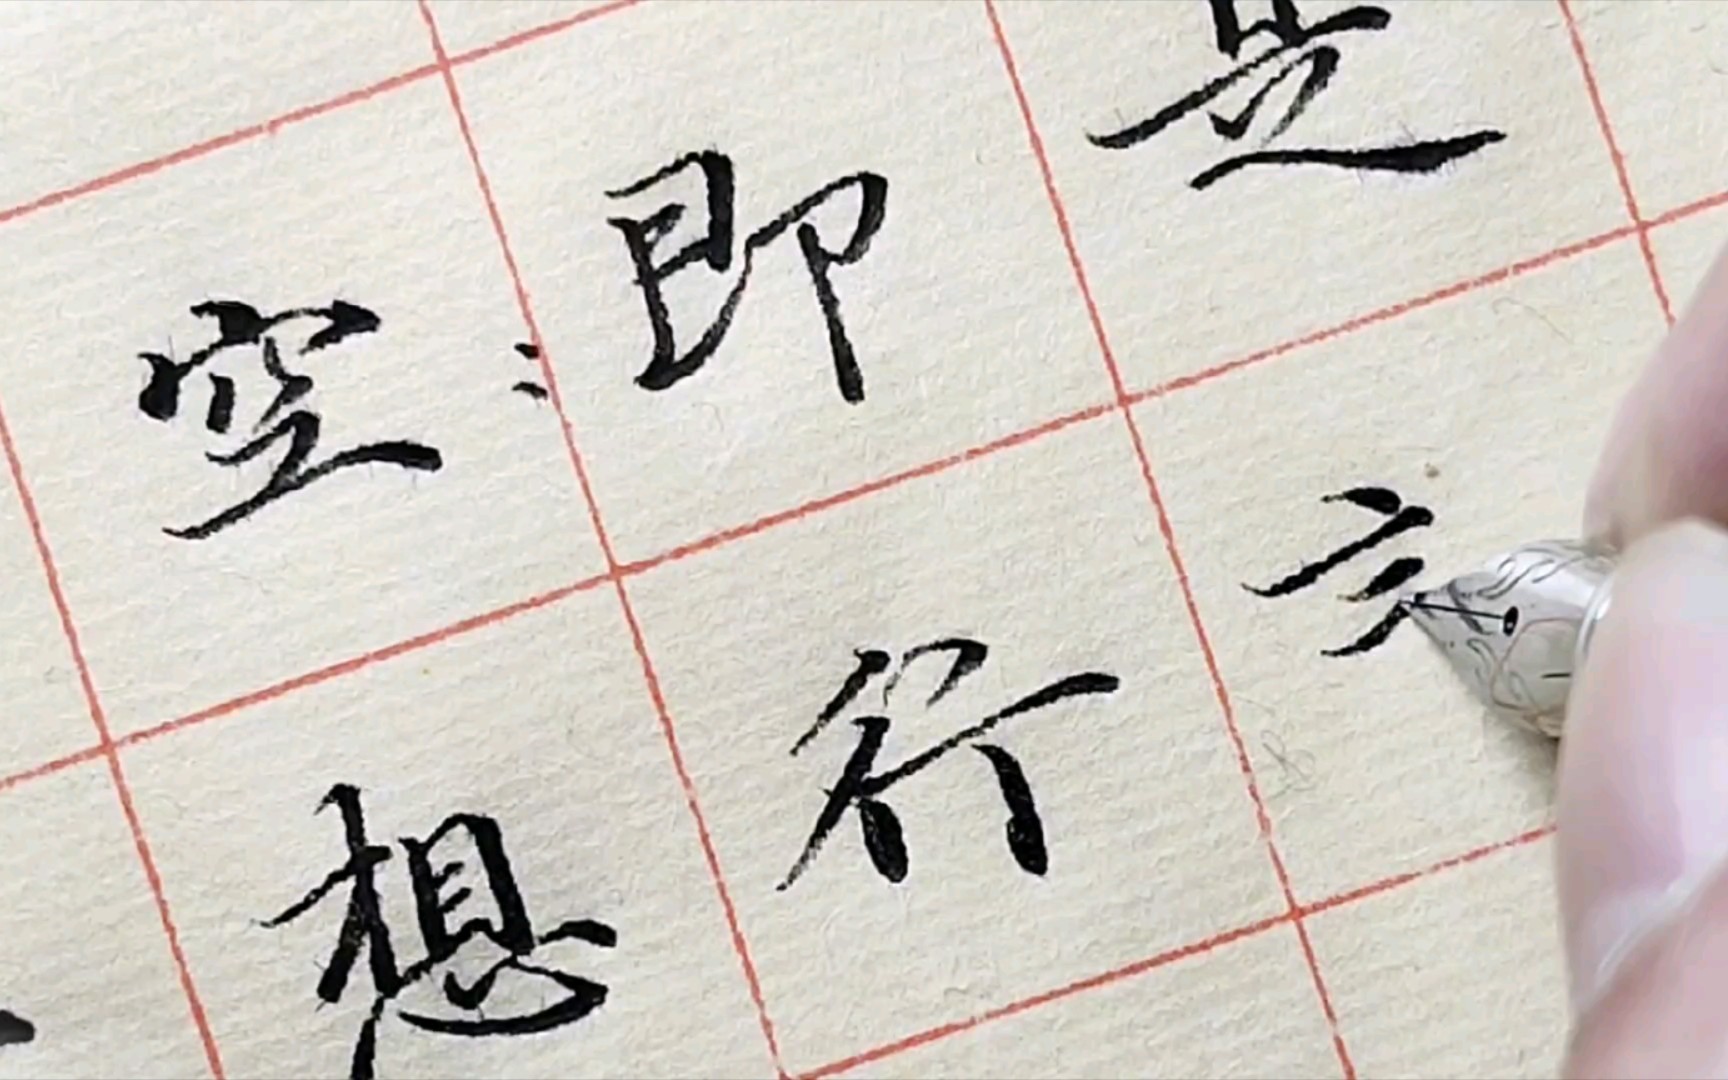 空〻即是
想行